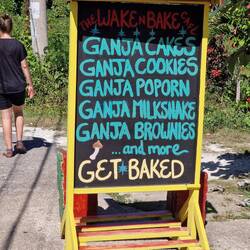 THE WAKE N BAKE CAFE
GANJA CAKES
GANJA COOKIES
GANJA POPORN
GANJA MILKSHAKE
GANJA BROWNIES
... and more
GET BAKED